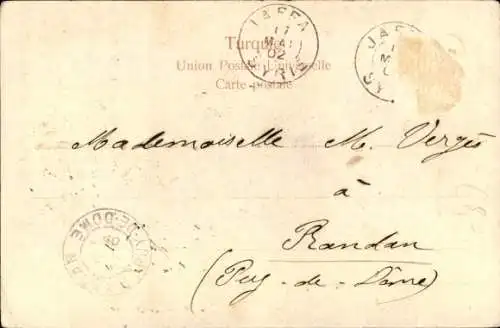 JAFFA
11
MAI
02
SYRIE
JAFF
SY
Turquie
Union Postale Universelle
Carte postale
Mademoiselle M. Vergès
à
Randan
(Puy-de-Dôme)
PUY-DE-DOME